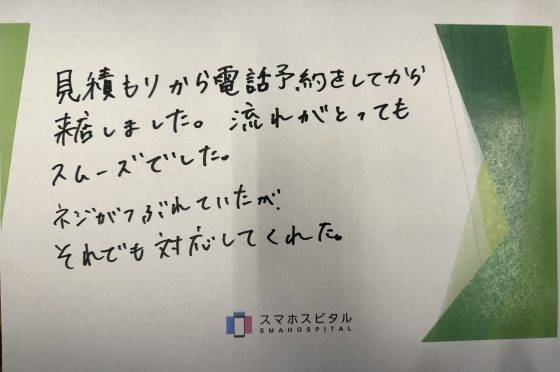 見積もりから電話予約をしてから
来店しました。流れがとっても
スムーズでした。
ネジがつぶれていたが、
それでも対応してくれた。
スマホスピタル
SMAHOSPITAL